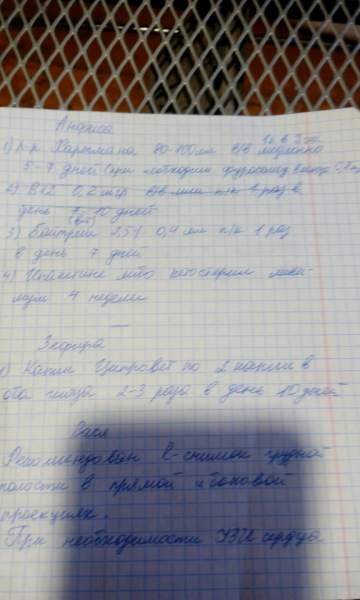 Анфиса
1 р в 3 дн
1) Р-р Хартмана 80-100 мл в/в медленно
5-7 дней (при необходим. фуросемид
2) В12 0,2 мгр в/м или п/к 1 раз в
день 10 дней
3) Байтрил 2,5% 0,4 мл п/к 1 раз
в день 7 дней
4) либо кетостерил
4 недели
Зефира
1) Капли Ципровет по 2 капли в
оба глаза 2-3 раза в день 10 дней
Вася
Рекомендован R-снимок грудной
полости в прямой и боковой
проекциях.
При необходимости УЗИ сердца